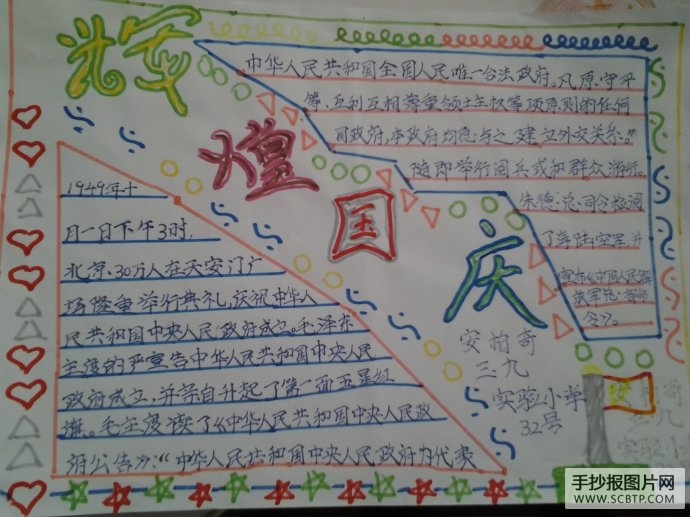 辉煌国庆
1949年十
月一日下午3时,
北京、30万人在天安门广
场隆重举行典礼,庆祝中华人
民共和国中央人民政府成立。毛泽东
主度的严宣告中华人民共和国中央人民
政府成立,并亲自升起了第一面五星红
旗。毛主度读了《中华人民共和国中央人民政
府公告》:“中华人民共和国中央人民政府为代表
中华人民共和国全国人民唯一合法政府。凡原、守平
等、互利互相尊重领土主权等项原则的任何
国政府,本政府均愿与之建立外交关系。”
随即举行阅兵式和群众游行。
朱德总司令检阅
了海陆空军并
宣布《中国人民解
令》。
安柏奇
三、九
实验小学
32号
安柏奇
三九
实验小
手抄报图片网
WWW.SCBTP.COM